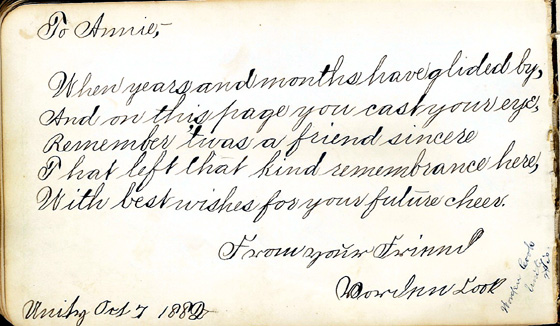 To Annie,
When years and months have glided by,
And on this page you cast your eye,
Remember 'twas a friend sincere
That left that kind remembrance here,
With best wishes for your future cheer.
From your Friend
Cook
Unity Oct 7 1882